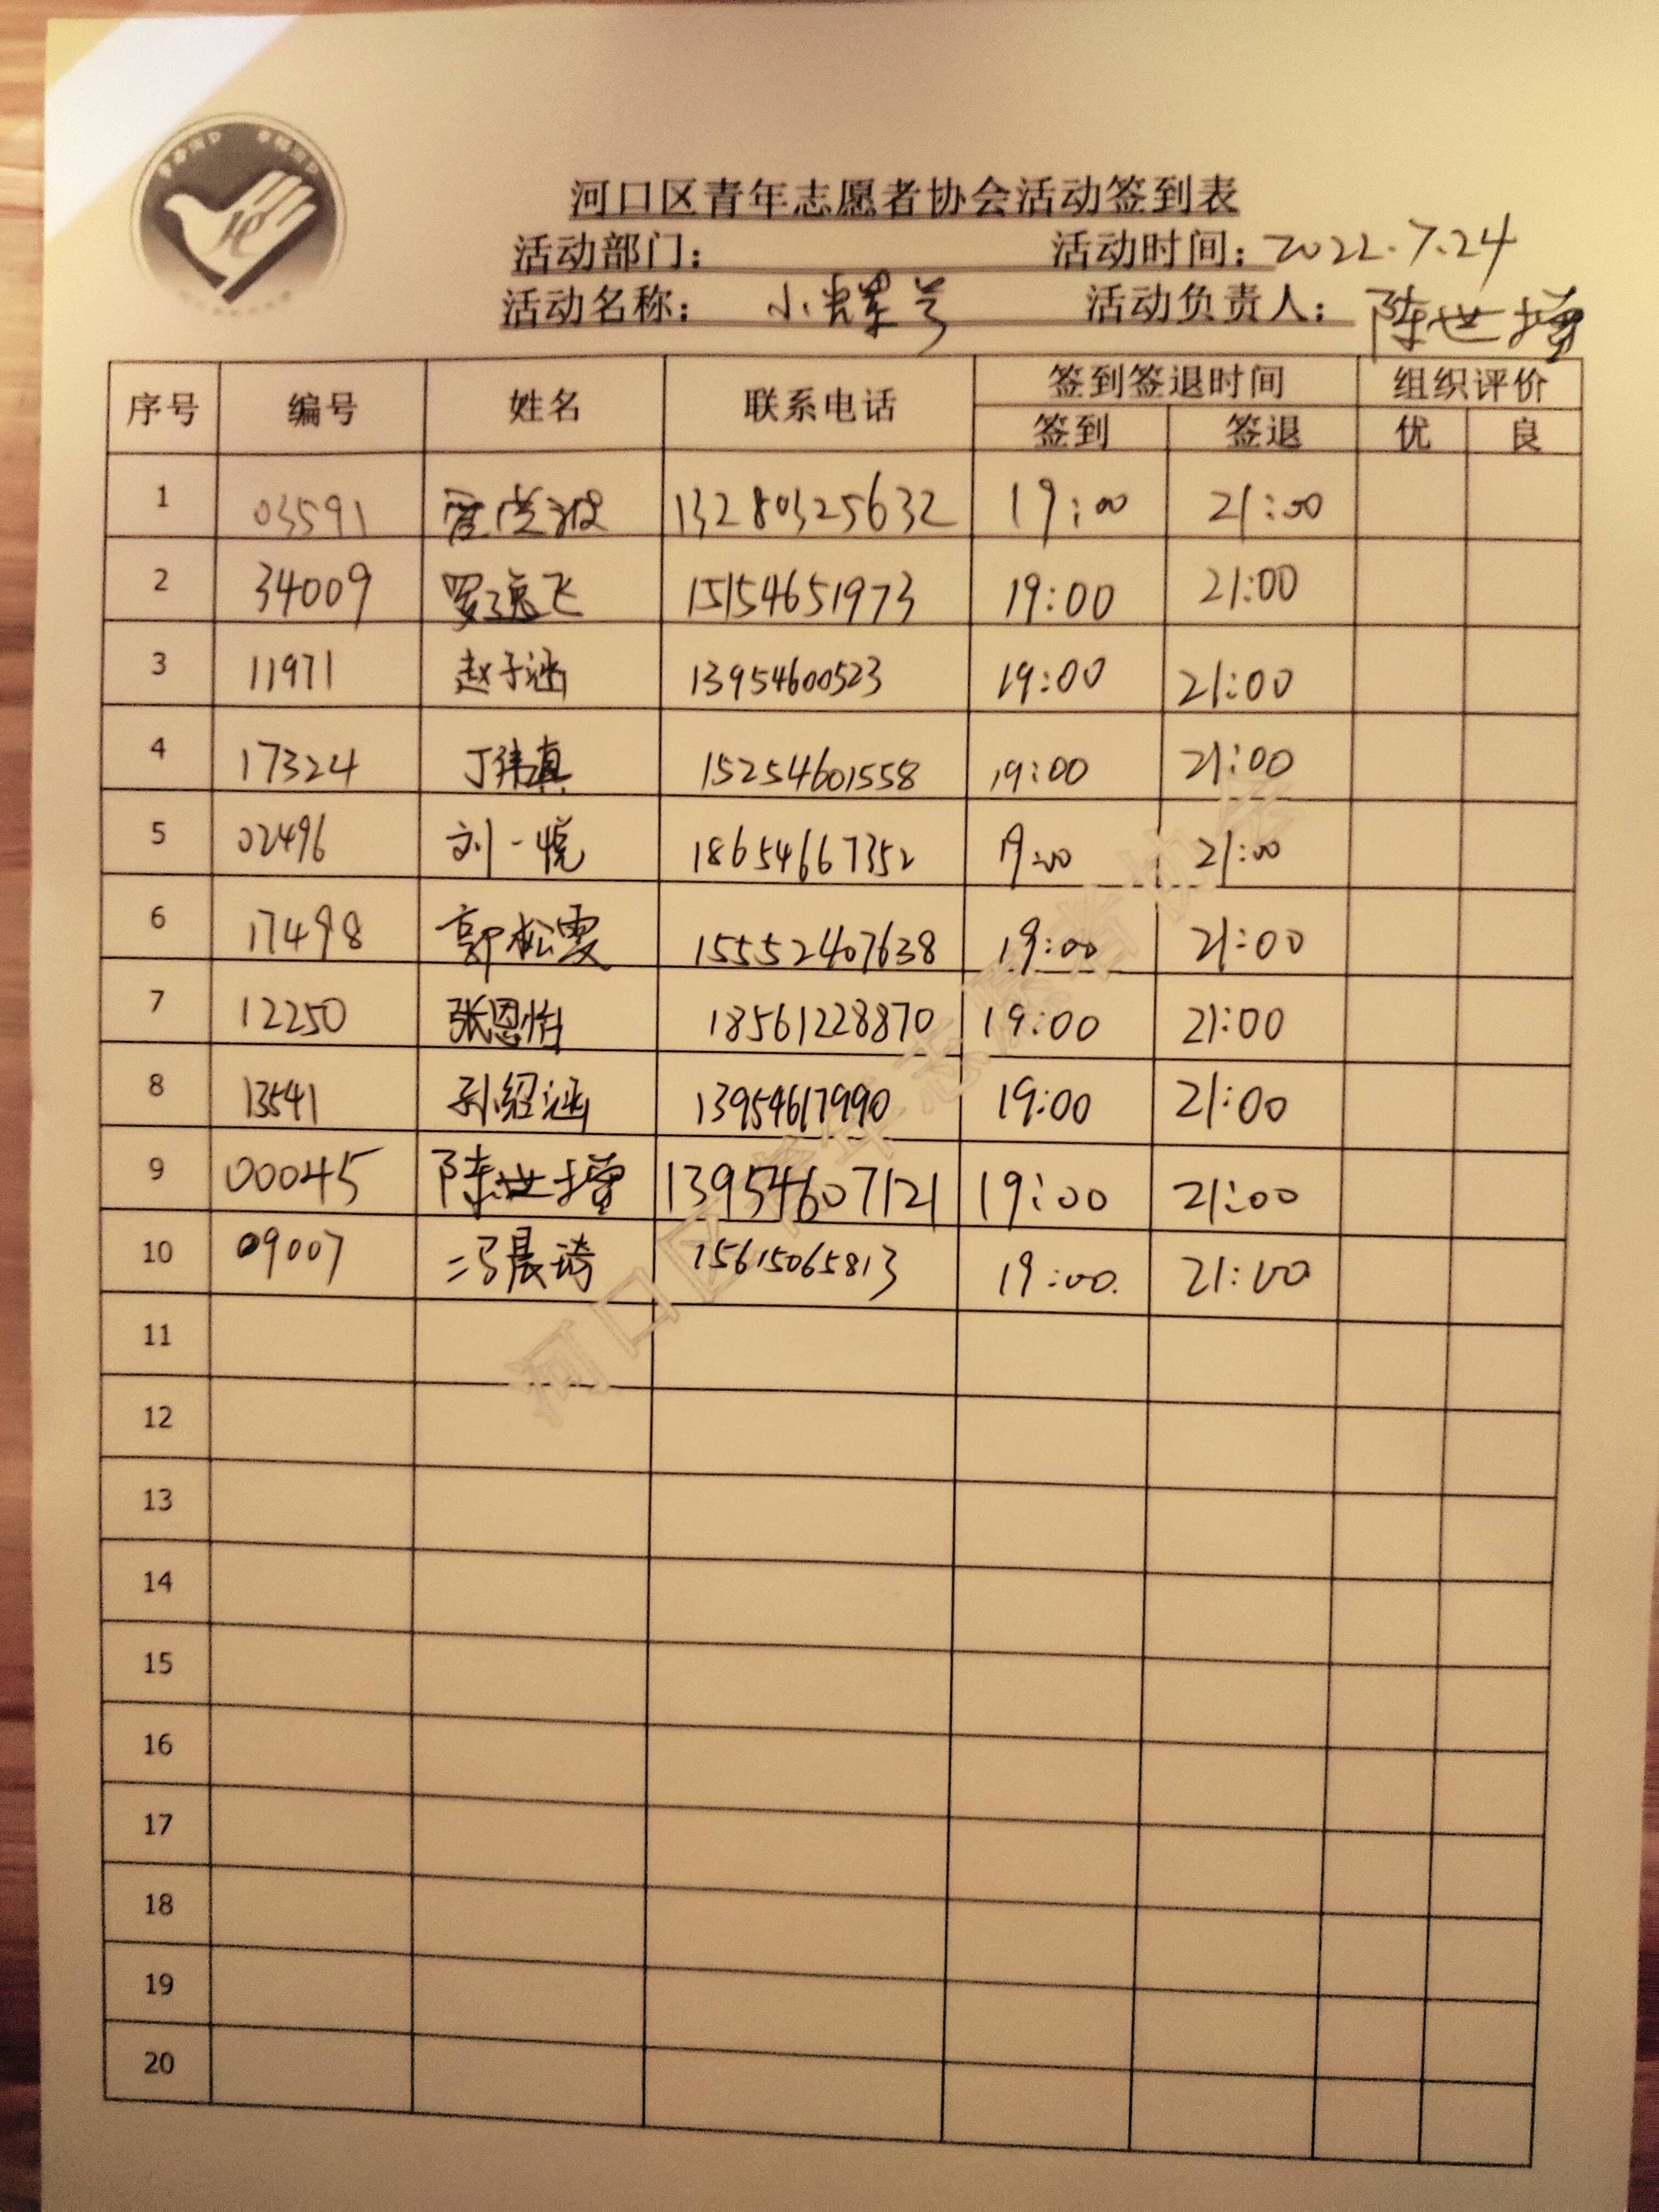 河口区青年志愿者协会活动签到表
活动部门： 活动时间：2022.7.24
活动名称：小 号 活动负责人：陈世增
序号 编号 姓名 联系电话 签到签退时间 组织评价
签到 签退 优 良
1 03591 13280325632 19:00 21:00
2 34009 罗 飞 15154651973 19:00 21:00
3 11971 赵子涵 13954600523 19:00 21:00
4 17324 丁 真 15254601558 19:00 21:00
5 02496 刘一悦 18654667352 19:00 21:00
6 17498 郭松雯 15552407638 19:00 21:00
7 12250 张恩怡 18561228870 19:00 21:00
8 13541 孙绍涵 13954617990 19:00 21:00
9 00045 陈世增 13954607121 19:00 21:00
10 09007 冯晨 15615065813 19:00 21:00
11
12
13
14
15
16
17
18
19
20
河口区青年志愿者协会